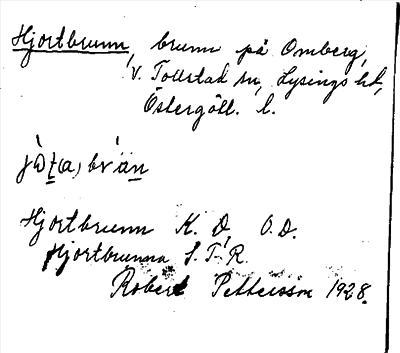 Hjortbrunn, brunn på Omberg,
V. Tollstad sn, Lysings hd,
Östergötl. l.
jòt(a)br´än
Hjortbrunn K. D., O.D.
Hjortbrunna S.T.R.
Robert Pettersson 1928.